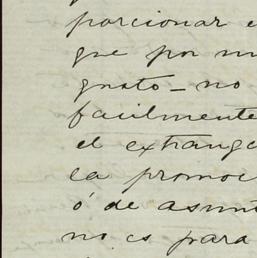 porcionar e
que por mu
grato _ no
facilmente
el extrange
la promoc
ó de asunt
no es para